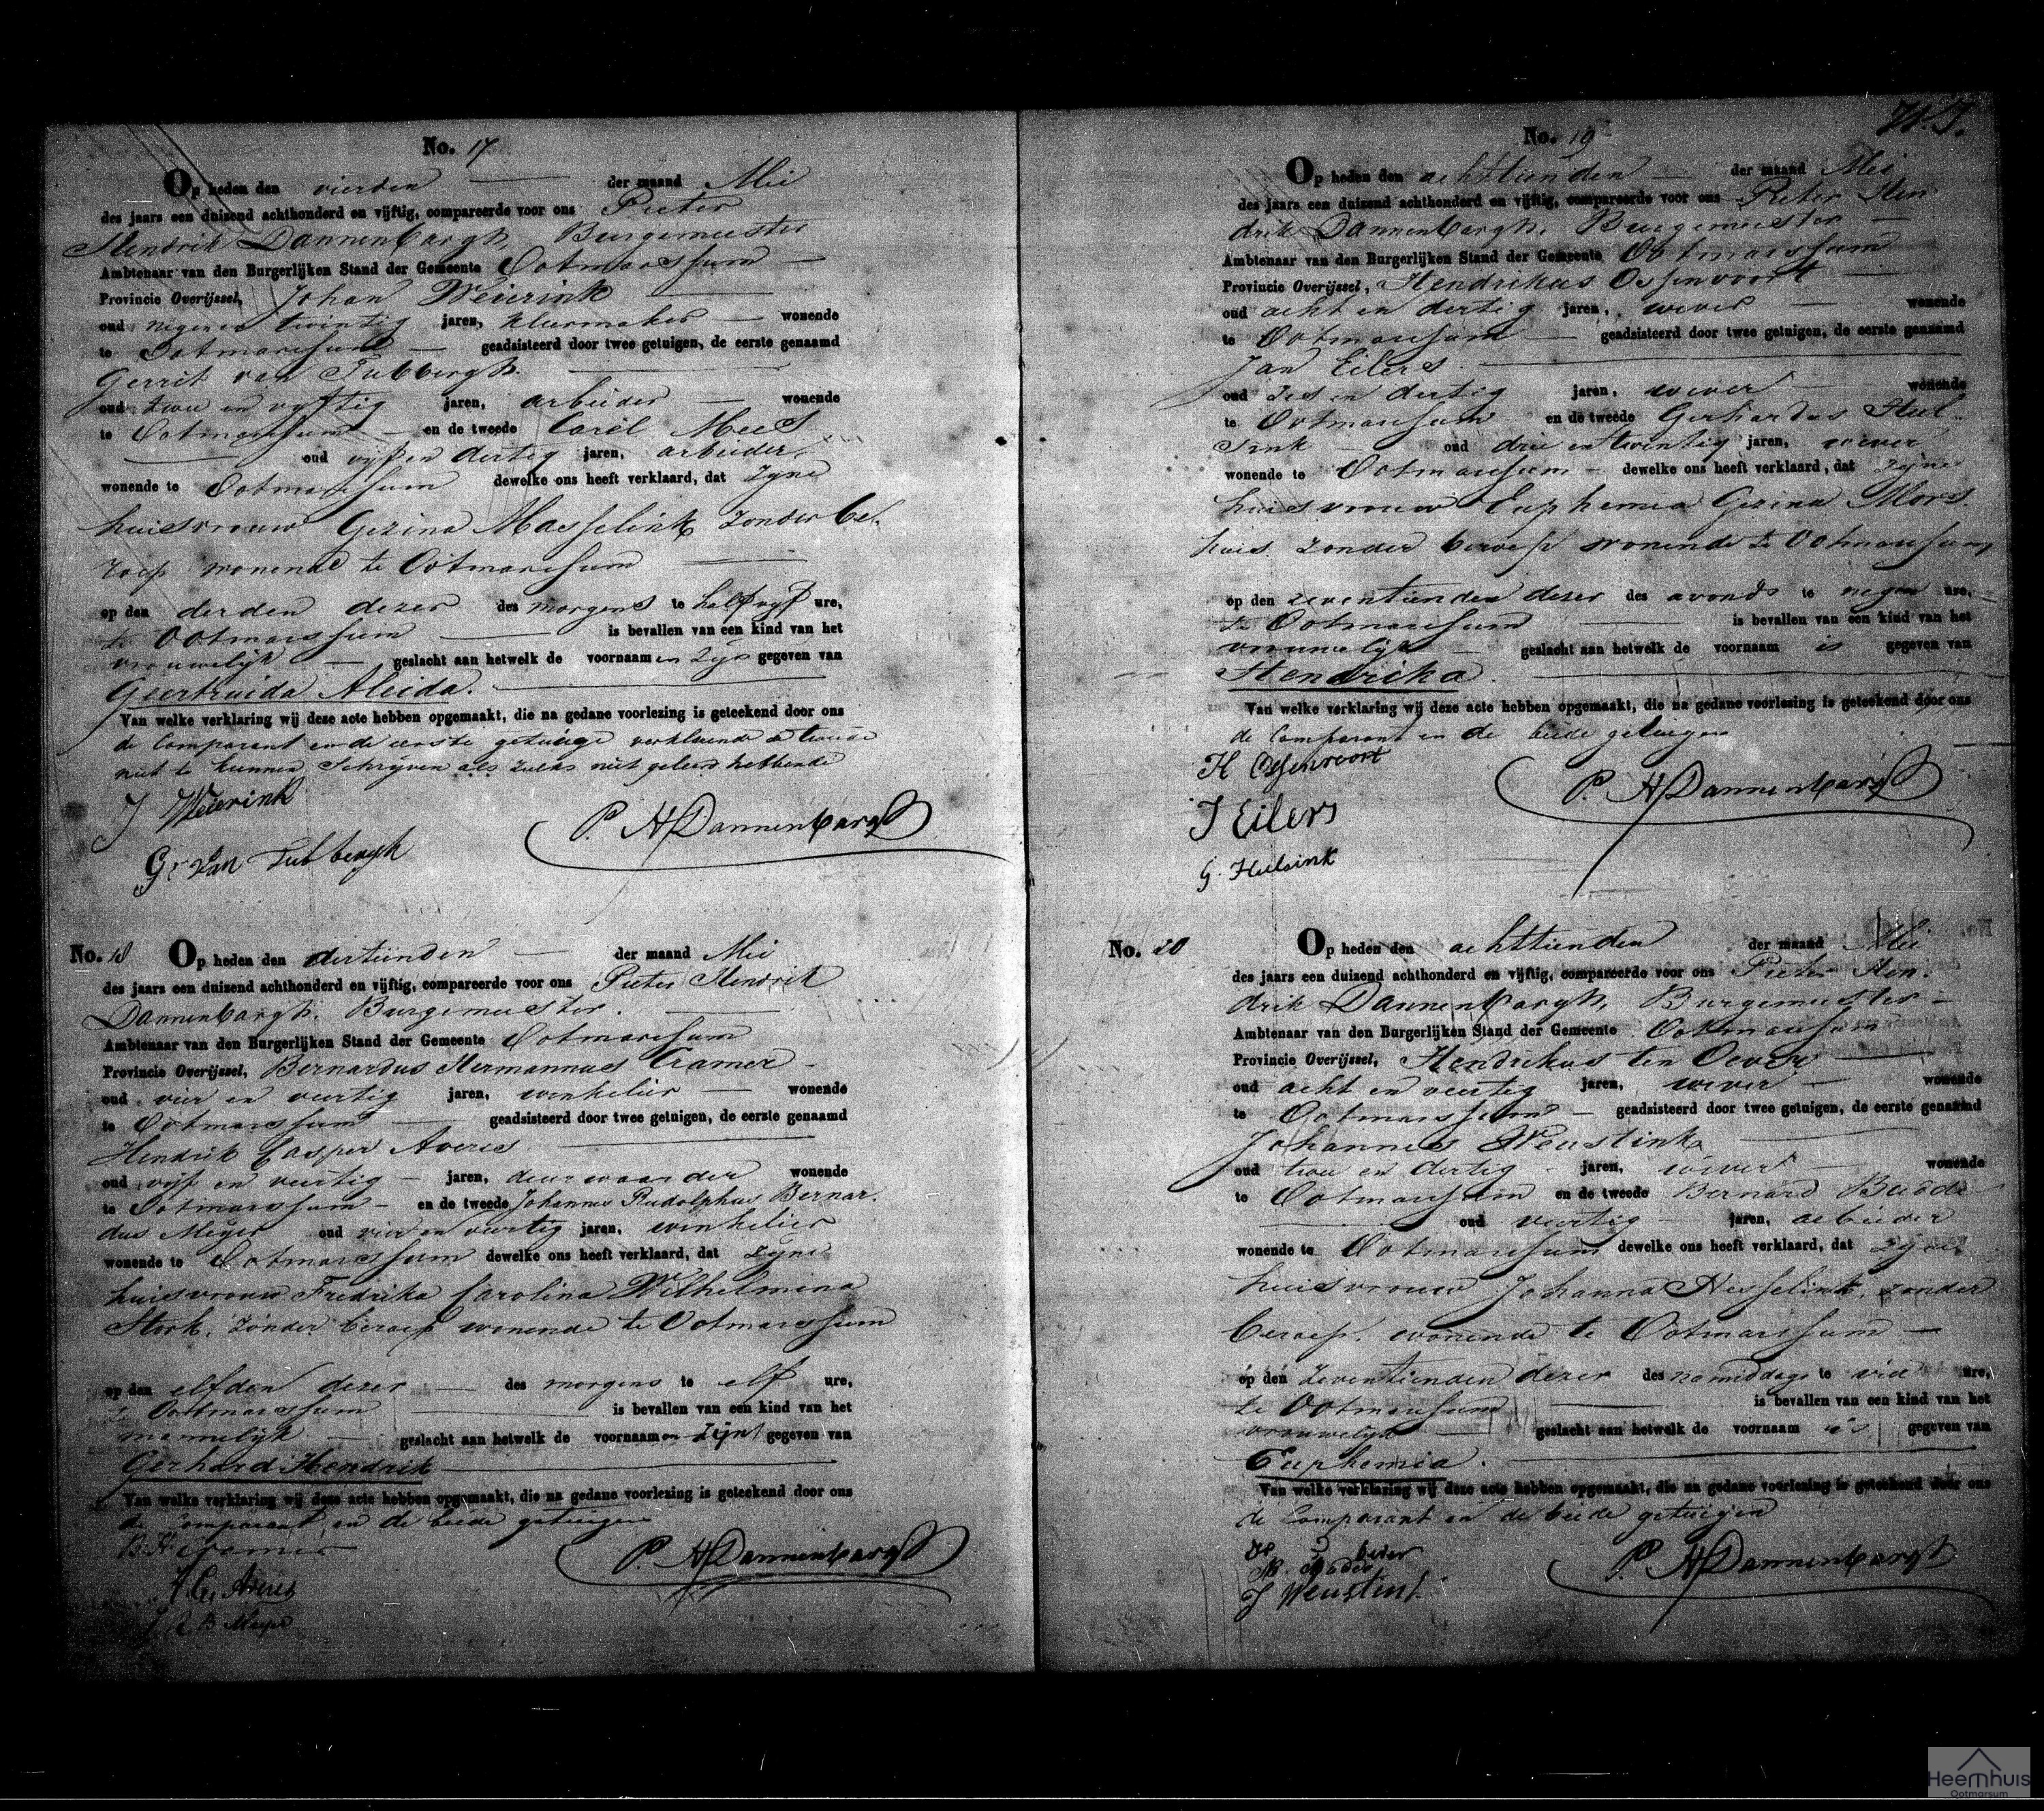 No. 17
Op heden den vierden der maand Mei
des jaars een duizend achthonderd en vijftig, compareerde voor ons Pieter
Hendrik Dannenbargh, Burgemeester
Ambtenaar van den Burgerlijken Stand der Gemeente Ootmarssum
Provincie Overijssel, Johan Weierink
oud negen en twintig jaren, kleermaker wonende
te Ootmarssum geadsisteerd door twee getuigen, de eerste genaamd
Gerrit van Tubbergh.
oud twee en vyftig jaren, arbeider wonende
te Ootmarssum en de tweede Carel Mees
oud vyf en dertig jaren, arbeider
wonende te Ootmarssum dewelke ons heeft verklaard, dat zyne
huisvrouw Gezina Masselink zonder be-
roep wonende te Ootmarssum
op den derden dezer des morgens te half vyf ure,
te Ootmarssum is bevallen van een kind van het
vrouwelyk geslacht aan hetwelk de voornaamen zyn gegeven van
Geertruida Aleida.
Van welke verklaring wij deze acte hebben opgemaakt, die na gedane voorlezing is geteekend door ons
de Comparant en de eerste getuige verklarende de tweede
niet te kunnen Schryven als zulks niet geleerd hebbende
J Weierink
P. H Dannenbargh
Gr van Tubbergh
No. 18 Op heden den dertienden der maand Mei
des jaars een duizend achthonderd en vijftig, compareerde voor ons Pieter Hendrik
Dannenbargh. Burgemeester.
Ambtenaar van den Burgerlijken Stand der Gemeente Ootmarssum
Provincie Overijssel, Bernardus Hermannus Cramer
oud vier en veertig jaren, winkelier wonende
te Ootmarssum geadsisteerd door twee getuigen, de eerste genaamd
Hendrik Casper Averes
oud vijf en veertig jaren, deurwaarder wonende
te Ootmarssum en de tweede Johannes Rudolphus Bernar-
dus Meyer oud vier en veertig jaren, winkelier
wonende te Ootmarssum dewelke ons heeft verklaard, dat zyne
huisvrouw Fredrika Carolina Wilhelmina
Stork, zonder beroep wonende te Ootmarssum
op den elfden dezer des morgens te elf ure,
te Ootmarssum is bevallen van een kind van het
mannelyk geslacht aan hetwelk de voornaamen zyn gegeven van
Gerhard Hendrik
Van welke verklaring wij deze acte hebben opgemaakt, die na gedane voorlezing is geteekend door ons
de Comparant en de beide getuigen
B. H. Cramer
P. H Dannenbargh
H C Averes
J R B Meyer
No. 19
Op heden den achttienden der maand Mei
des jaars een duizend achthonderd en vijftig, compareerde voor ons Pieter Hen-
drik Dannenbargh, Burgemeester
Ambtenaar van den Burgerlijken Stand der Gemeente Ootmarssum
Provincie Overijssel, Hendrikus Ossenvoort
oud acht en dertig jaren, wever wonende
te Ootmarssum geadsisteerd door twee getuigen, de eerste genaamd
Jan Eilers.
oud zes en dertig jaren, wever wonende
te Ootmarssum en de tweede Gerhardus Hul-
sink oud drie en twintig jaren, wever
wonende te Ootmarssum dewelke ons heeft verklaard, dat zyne
huisvrouw Euphemia Gezina Mors-
huis zonder beroep wonende te Ootmarssum
op den zeventienden dezer des avonds te negen ure,
te Ootmarssum is bevallen van een kind van het
vrouwelyk geslacht aan hetwelk de voornaam is gegeven van
Hendrika.
Van welke verklaring wij deze acte hebben opgemaakt, die na gedane voorlezing is geteekend door ons
de Comparant en de beide getuigen
H Ossenvoort
P. H Dannenbargh
J Eilers
G. Hulsink
No. 20 Op heden den achttienden der maand Mei
des jaars een duizend achthonderd en vijftig, compareerde voor ons Pieter Hen-
drik Dannenbargh, Burgemeester
Ambtenaar van den Burgerlijken Stand der Gemeente Ootmarssum
Provincie Overijssel, Hendrikus ten Oever
oud acht en veertig jaren, wever wonende
te Ootmarssum geadsisteerd door twee getuigen, de eerste genaamd
Johannes Weustink
oud twee en dertig jaren, wever wonende
te Ootmarssum en de tweede Bernard Budde
oud veertig jaren, arbeider
wonende te Ootmarssum dewelke ons heeft verklaard, dat zyne
huisvrouw Johanna Hesselink, zonder
beroep, wonende te Ootmarssum
op den zeventienden dezer des namiddags te vier ure,
te Ootmarssum is bevallen van een kind van het
vrouwelyk geslacht aan hetwelk de voornaam is gegeven van
Euphemia.
Van welke verklaring wij deze acte hebben opgemaakt, die na gedane voorlezing is geteekend door ons
de Comparant en de beide getuigen
P. H Dannenbargh
J Weustink
Heemhuis
Ootmarsum